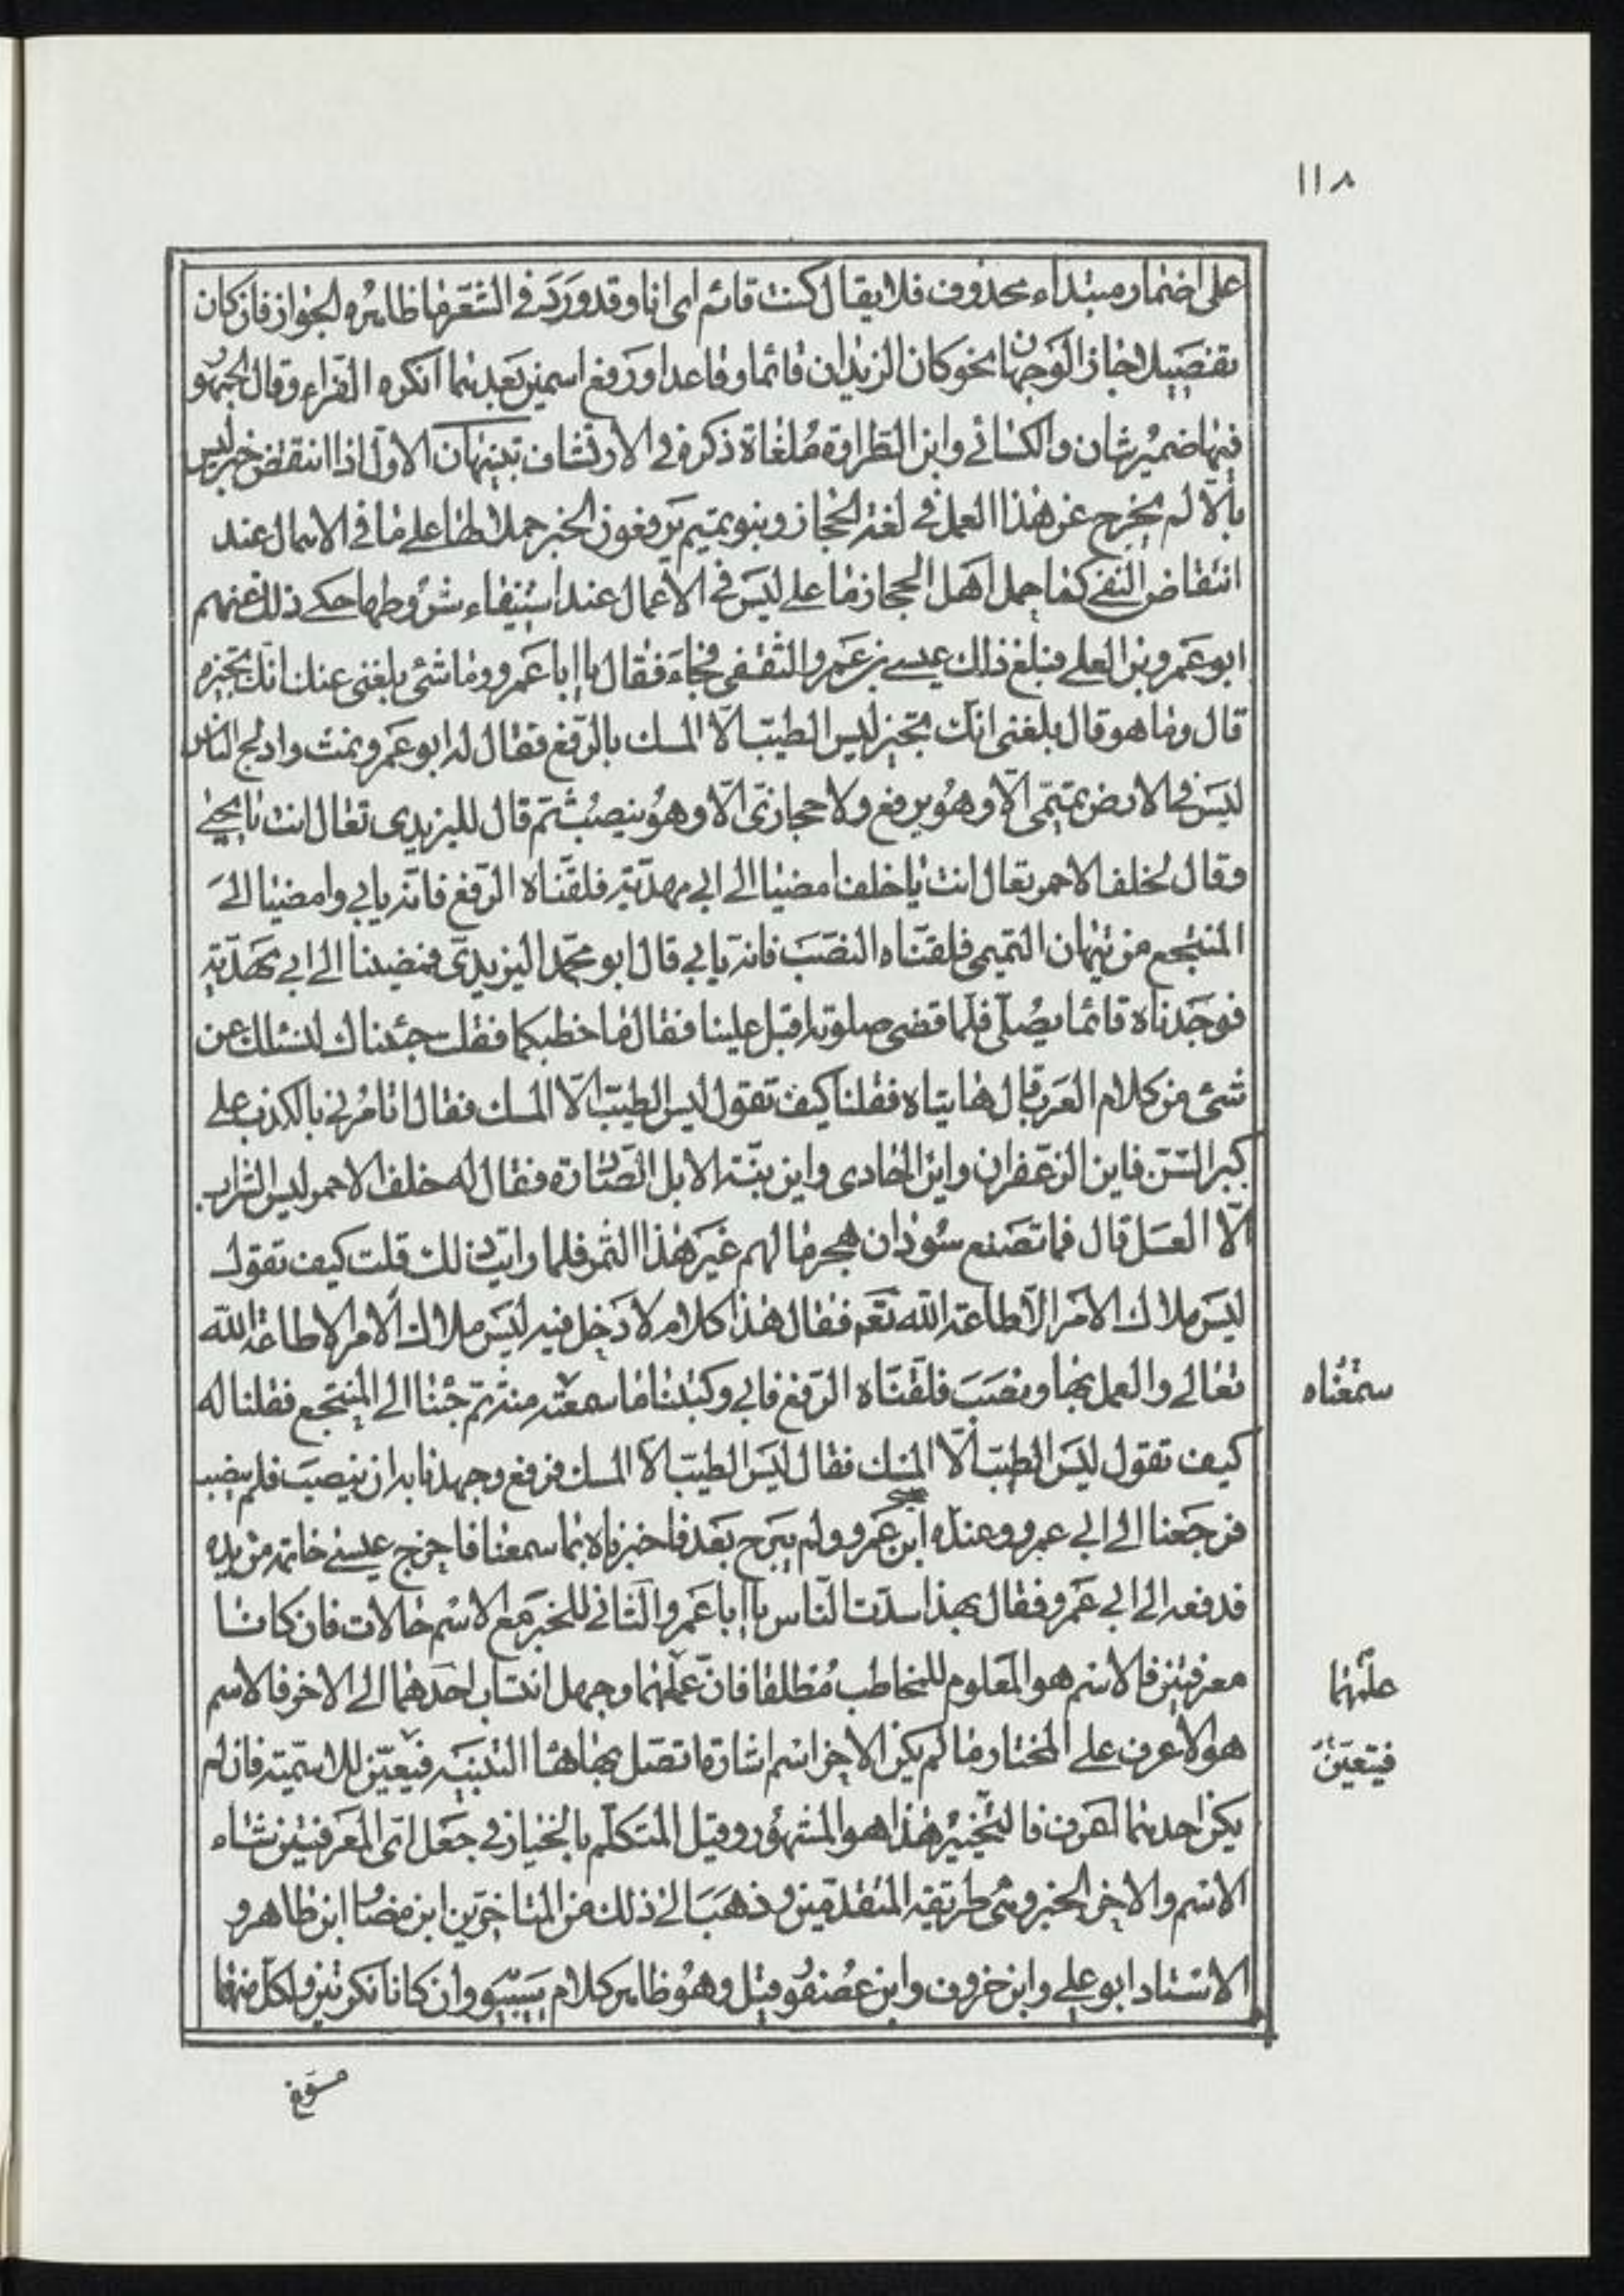 ١١٨
على اضمار مبتداء محذوف فلا يقال كنت قائم اى انا وقد ورد فى الشعر ما ظاهره الجواز فان كان
تفصيلا جاز الوجهان نحو كان الزيدان قائما وقاعدا ورفع اسمين بعدهما انكره الفراء وقال الجمهو
فيها ضمير شان والكسائي وابن الطراوة ملغاة ذكره فى الارتشاف تبيهان الاول اذا انتقض خبر ليس
بالا لم يخرج عن هذا العمل فى لغة الحجاز وبنو تميم يرفعون الخبر حملا لها على ما فى الاهمال عند
انتقاض النفى كما حمل اهل الحجاز ما على ليس فى الاعمال عند استيفاء شروطها حكى ذلك عنهم
ابو عمرو بن العلى فبلغ ذلك عيسى بن عمرو الثقفى فجاءه فقال يا ابا عمرو وما شئ بلغنى عنك انك تجيزه
قال وما هو قال بلغنى انك تجيز ليس الطيب الا المسك بالرفع فقال له ابو عمرو نمت وادلج الناس
ليس فى الارض تميمى الا وهو يرفع ولا حجازى الا وهو ينصب ثم قال لليزيدى تعال انت يا يحيى
وقال لخلف الاحمر تعال انت يا خلف امضيا الى ابى مهدية فلقناه الرفع فانه يابى وامضيا الى
المنتجع من نيهان التميمى فلقناه النصب فانه يابى قال ابو محمد اليزيدى فمضينا الى ابى مهدية
فوجدناه قائما يصلى فلما قضى صلوته اقبل علينا فقال ما خطبكما فقلت جئناك لنسئلك عن
شئ من كلام العرب قال هاتياه فقلنا كيف تقول ليس الطيب الا المسك فقال اتامرنى بالكذب على
كبر السن فاين الزعفران واين الجادى واين بنة الابل الصادرة فقال له خلف الاحمر ليس الشراب
الا العسل قال فما تصنع سودان هجر ما لهم غير هذا التمر فلما رايت ذلك قلت كيف تقول
ليس ملاك الامر الا طاعة الله نعم فقال هذا كلام لا دخل فيه ليس ملاك الامر الا طاعة الله
تعالى والعمل بها ونصب فلقناه الرفع فابى وكتبنا ما سمعته منه ثم جئنا الى المنتجع فقلنا له
سمعناه
كيف تقول ليس الطيب الا المسك فقال ليس الطيب الا المسك فرفع وجهدنا به ان ينصب فلم ينصب
فرجعنا الى ابى عمرو وعنده عيسى ابن عمرو ولم يبرح بعد فاخبرناه بما سمعنا فاخرج عيسى خاتمه من يده
فدفعه الى ابى عمرو فقال بهذا سدت الناس يا ابا عمرو الثانى للخبر مع الاسم حالات فان كانا
معرفتين فالاسم هو المعلوم للمخاطب مطلقا فان علمهما وجهل انتساب احدهما الى الاخر فالاسم
علمهما
هو الاعرف على المختار ما لم يكن الاخر اسم اشارة اتصل بها ها التنبيه فيعين للاسمية فان لم
فيتعين
يكن احدهما اعرف فالتخيير هذا هو المشهور وقيل المتكلم بالخيار فى جعل اى المعرفتين شاء
الاسم والاخر الخبر وهى طريقة المتقدمين وذهب الى ذلك من المتاخرين ابن مضا ابن طاهر و
الاستاد ابو على وابن خروف وابن عصفور قيل وهو ظاهر كلام سيبو وان كانا نكرتين ولكل منهما
مسوغ